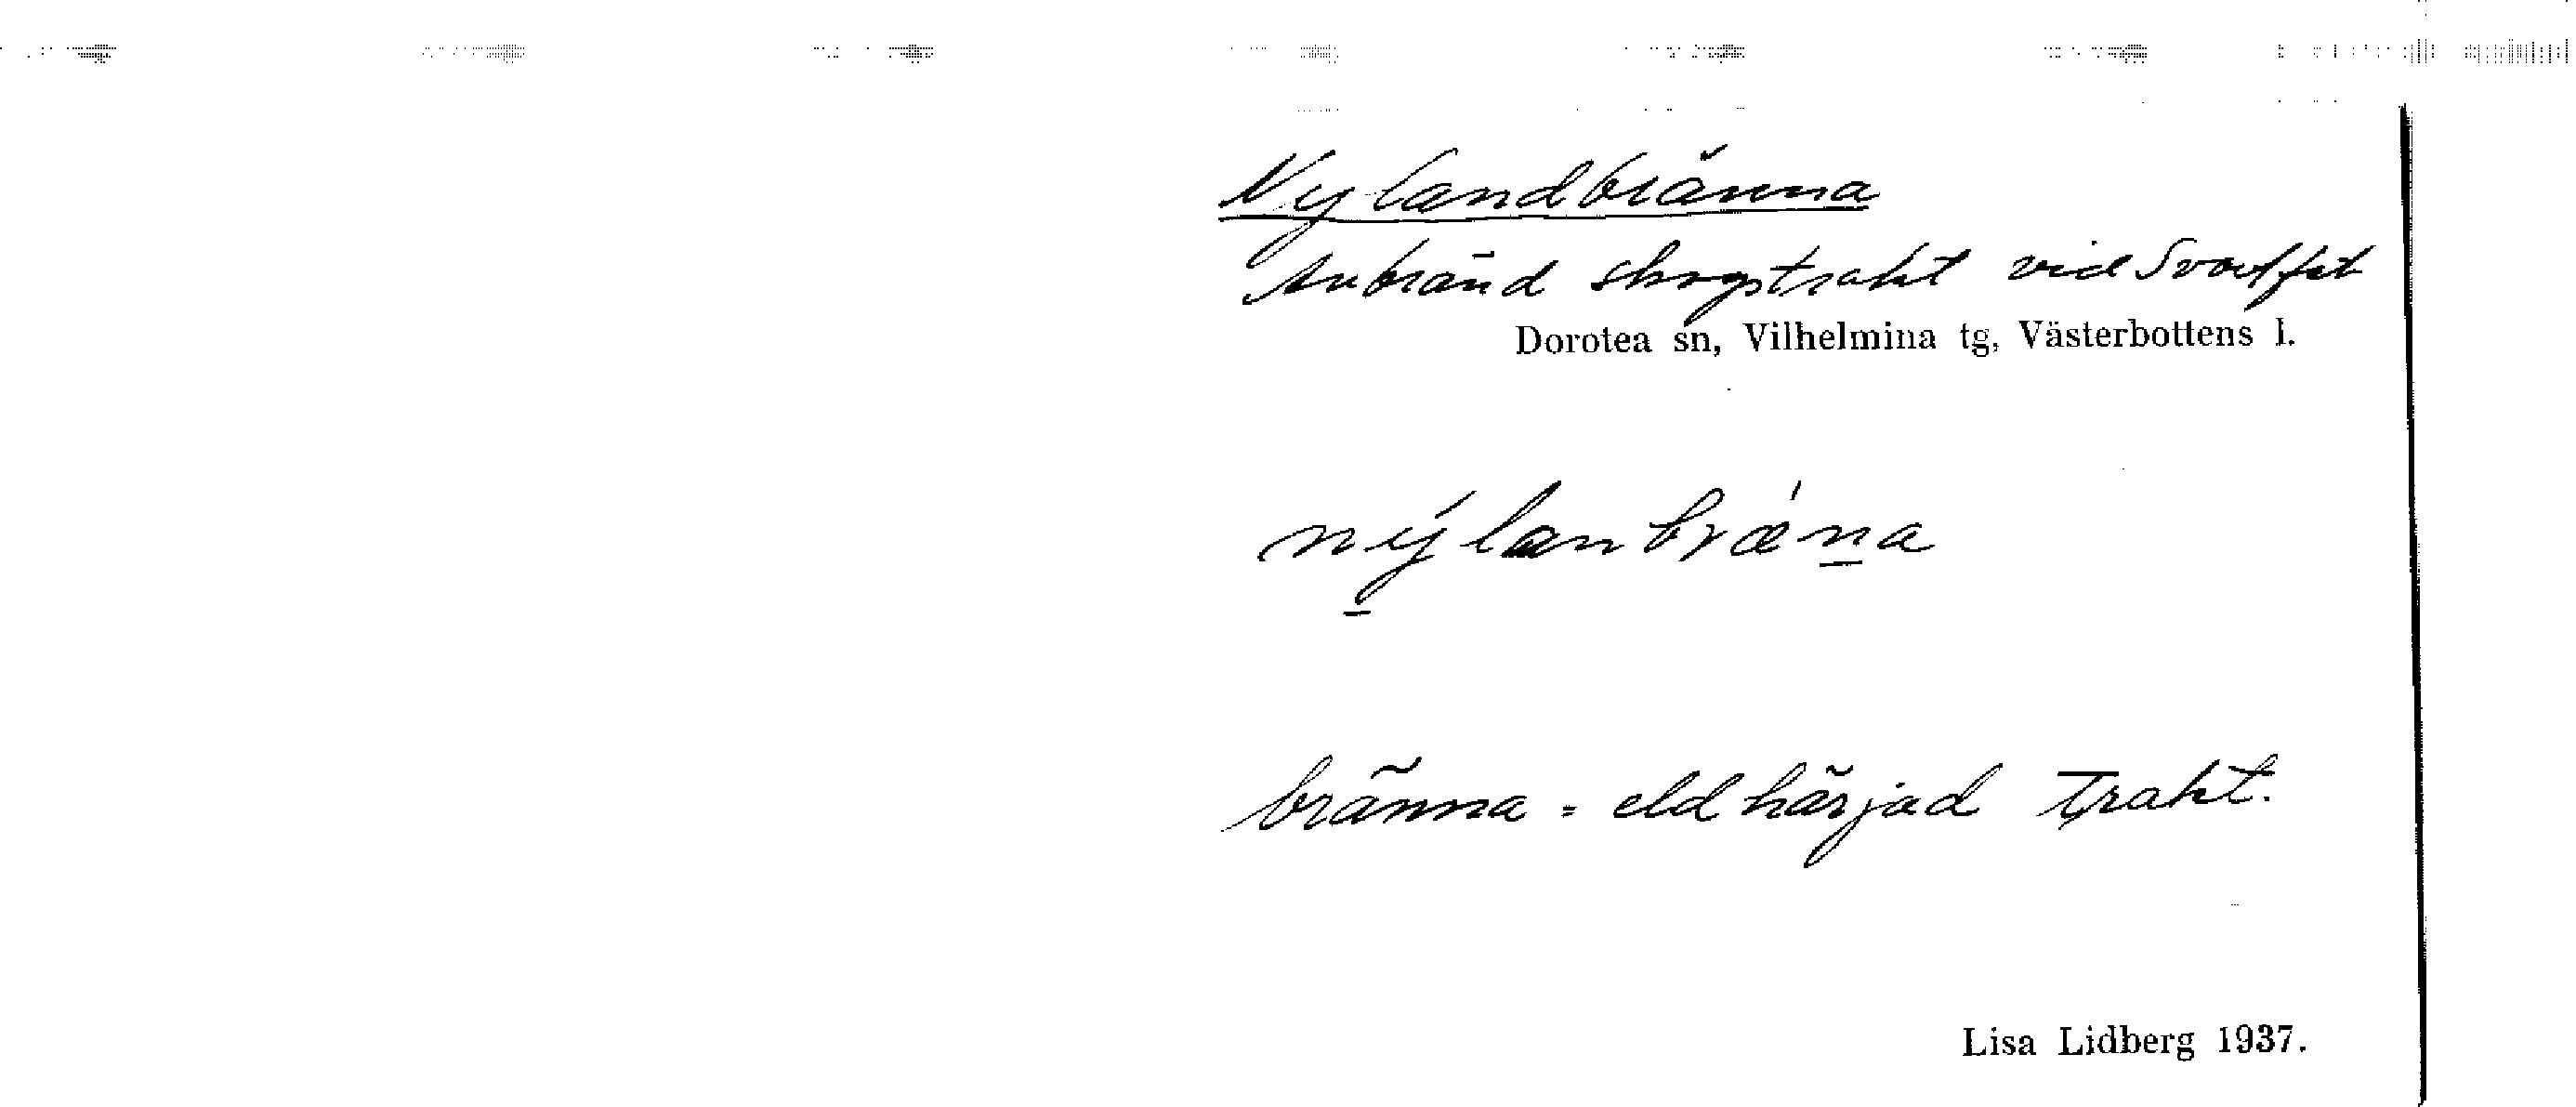 Nylandbränna
Avbränd skogstrakt vid
Dorotea sn, Vilhelmina tg, Västerbottens l.
nýlanbrǽna
bränna = eldhärjad trakt.
Lisa Lidberg 1937.